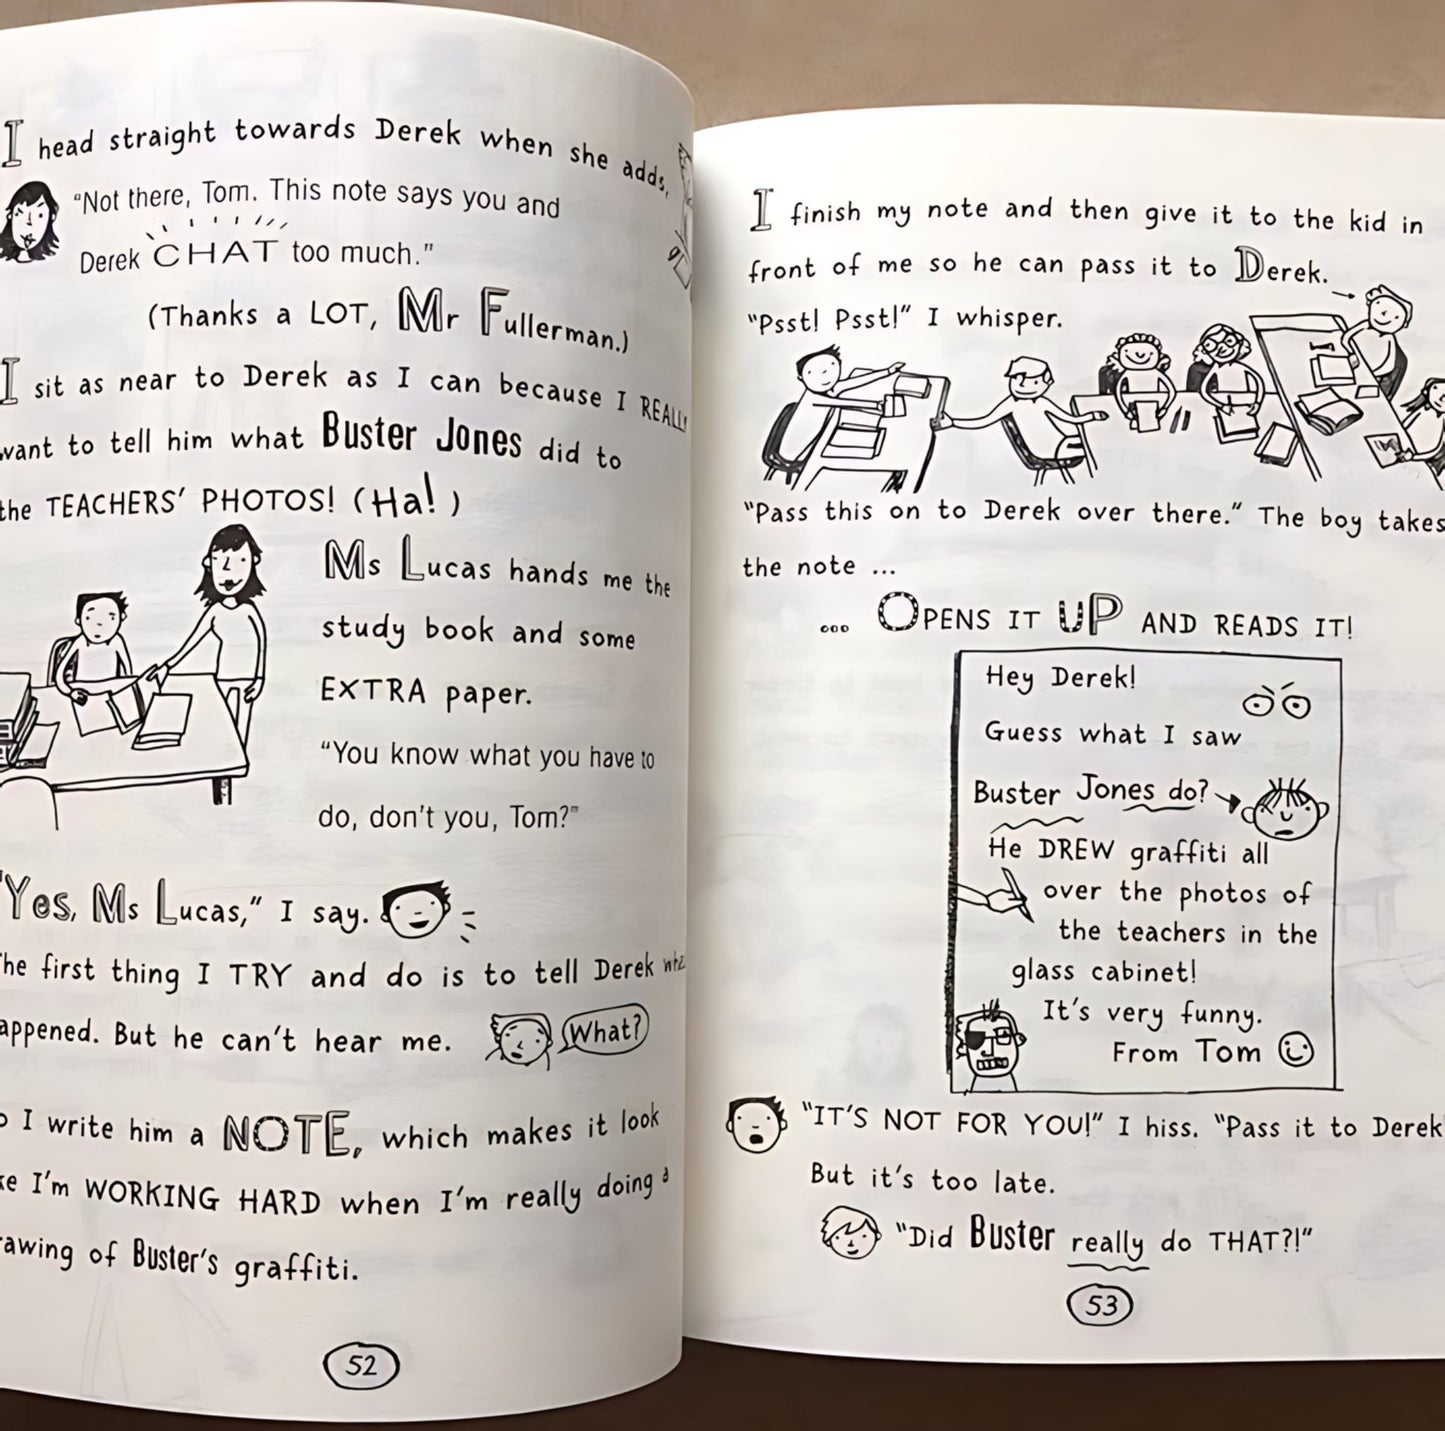 I head straight towards Derek when she adds,
"Not there, Tom. This note says you and
Derek CHAT too much."
(Thanks a LOT, Mr Fullerman.)
I sit as near to Derek as I can because I REALLY
want to tell him what Buster Jones did to
the TEACHERS' PHOTOS! (Ha!)
Ms Lucas hands me the
study book and some
EXTRA paper.
"You know what you have to
do, don't you, Tom?"
"Yes, Ms Lucas," I say.
The first thing I TRY and do is to tell Derek
appened. But he can't hear me.
What?
I write him a NOTE, which makes it look
ke I'm WORKING HARD when I'm really doing a
rawing of Buster's graffiti.
52
I finish my note and then give it to the kid in
front of me so he can pass it to Derek.
"Psst! Psst!" I whisper.
"Pass this on to Derek over there." The boy takes
the note ...
... OPENS IT UP AND READS IT!
Hey Derek!
Guess what I saw
Buster Jones do?
He DREW graffiti all
over the photos of
the teachers in the
glass cabinet!
It's very funny.
From Tom
"IT'S NOT FOR YOU!" I hiss. "Pass it to Derek
But it's too late.
"Did Buster really do THAT?!"
53